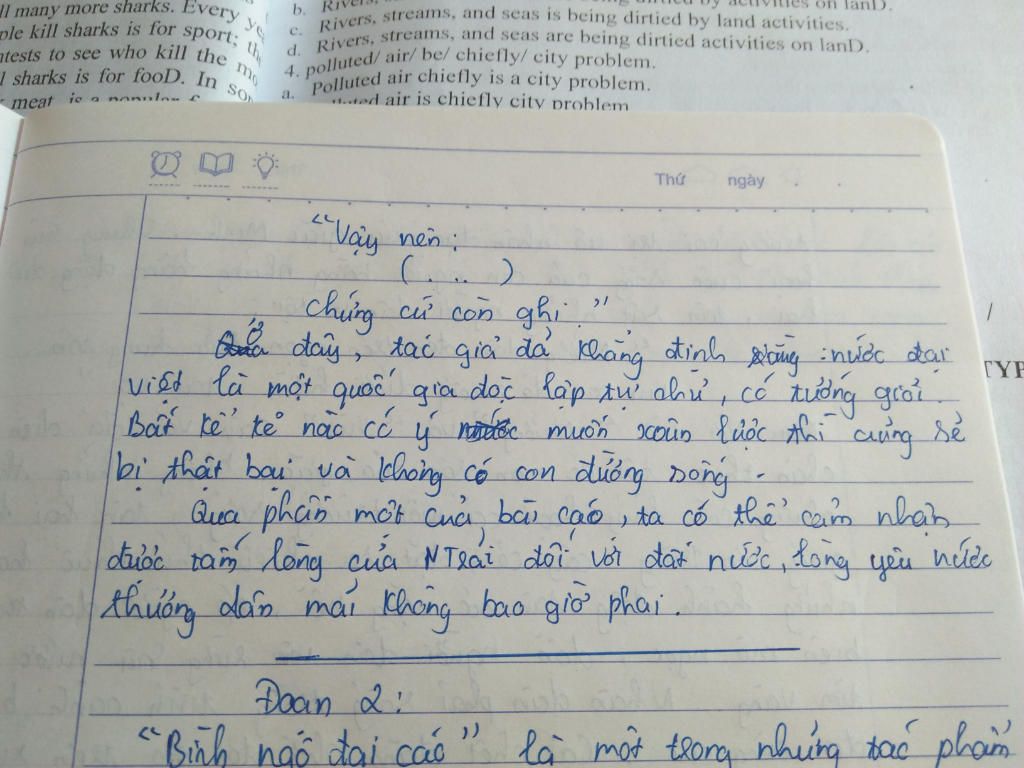 ll many more sharks. Every ye
ple kill sharks is for sport; th
ntests to see who kill the mo
l sharks is for fooD. In so
meat is a popular f
b. Rivers, streams, and seas being dirtied by activities on lanD.
c. Rivers, streams, and seas is being dirtied by land activities.
d. Rivers, streams, and seas are being dirtied activities on lanD.
4. polluted/ air/ be/ chiefly/ city problem.
a. Polluted air chiefly is a city problem.
lluted air is chiefly city problem
TYP
Thứ ngày
"Vậy nên:
(...)
chứng cứ còn ghi."
Ở đây, tác giả đã khẳng định rằng: nước đại
việt là một quốc gia độc lập tự chủ, có tướng giỏi.
Bất kể kẻ nào có ý muốn xâm lược thì cũng sẽ
bị thật bại và không có con đường sống.
Qua phần một của bài cáo, ta có thể cảm nhận
được tấm lòng của NTrãi đối với đất nước, lòng yêu nước
thương dân mãi không bao giờ phai.
Đoạn 2:
"Bình ngô đại cáo" là một trong những tác phẩm